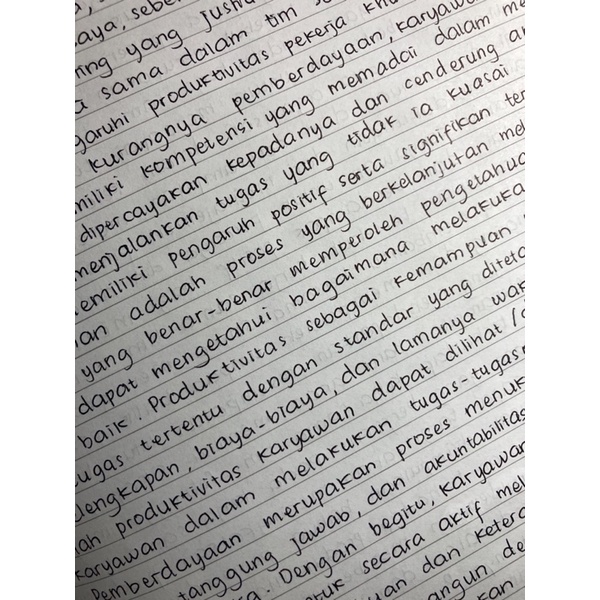 aya, sebe
ng yang justru
sama dalam tim
garuhi produktivitas pekerja
kurangnya pemberdayaan, karyaw
miliki kompetensi yang memadai dalam me
dipercayakan kepadanya dan cenderung a
menjalankan tugas yang tidak ia kuasai
emiliki pengaruh positif serta signifikan ter
an adalah proses yang berkelanjutan me
yang benar-benar memperoleh pengetahua
dapat mengetahui bagaimana melakuka
baik. Produktivitas sebagai kemampuan
ugas tertentu dengan standar yang diteta
lengkapan, biaya-biaya, dan lamanya wak
ah produktivitas karyawan dapat dilihat
karyawan dalam melakukan tugas-tugas
Pemberdayaan merupakan proses menuk
tanggung jawab, dan akuntabilitas
a. Dengan begitu, karyawan
tuk secara aktif mel
uan dan ketera
angun. de
kan